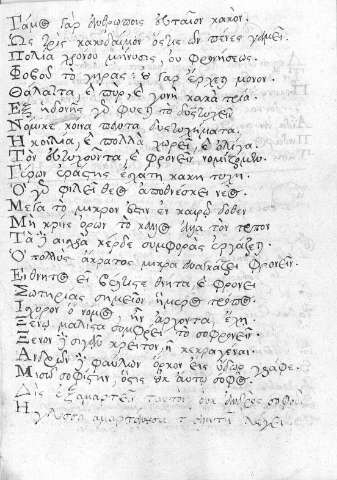 Γάμος γὰρ ἀνθρώποις εὐκταῖον κακόν.
Ὡς τρὶς κακοδαίμων ὅστις ὢν πένης γαμεῖ.
Πολιὰ χρόνου μήνυσις, οὐ φρονήσεως.
Φοβοῦ τὸ γῆρας· οὐ γὰρ ἔρχεται μόνον.
Θάλαττα, καὶ πῦρ, καὶ γυνὴ κακὰ τρία.
Ἐξ ἡδονῆς γὰρ φύεται τὸ δυστυχεῖν
Νόμιζε κοινὰ πάντα δυστυχήματα.
Ἡ κοιλία, καὶ πολλὰ χωρεῖ, καὶ ὀλίγα.
Τὸν εὐτυχοῦντα, καὶ φρονεῖν νομίζομεν.
Γέρων ἐραστὴς ἐσχάτη κακὴ τύχη.
Ὃν γὰρ φιλεῖ θεὸς ἀποθνήσκει νέος.
Μέγα τὸ μικρόν ἐστιν ἐν καιρῷ δοθέν
Μὴ κρῖνε ὁρῶν τὸ κάλλος ἀλλὰ τὸν τρόπον
Τὰ δὲ αἰσχρὰ κέρδε συμφορὰς ἐργάζεται.
Ὁ πολλὺς ἄκρατος μικρὰ ἀναγκάζει φρονεῖν.
Εἰ θνητὸς εἶ βέλτιστε θνητὰ, καὶ φρόνει
Σωτηρίας σημεῖον ἥμερος τρόπος.
Ἰσχυρὸν ὁ νόμος, ἢν ἄρχοντα, ἔχῃ.
Ξένῳ, μάλιστα συμφέρει τὸ σωφρονεῖν.
Ξένον δὲ σιγᾶν κρεῖττον, ἢ κεκραγέναι.
Ἀνδρῶν δὲ φαύλων ὅρκον εἰς ὕδωρ γράφε.
Μισῶ σοφιστὴν, ὅστις οὐκ αὑτῷ σοφός.
Δὶς ἐξαμαρτεῖν ταυτὸν, οὐκ ἀνδρὸς σοφοῦ.
Ἡ γλῶσσα ἁμαρτάνουσα τἀληθῆ λέγει.